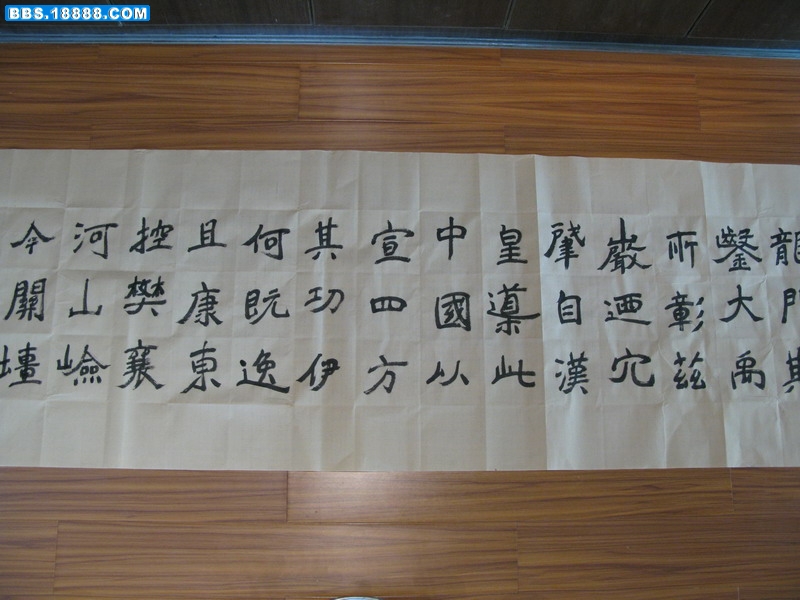 BBS.18888.COM
龍門斯
鑿大禹
所彰茲
巖迺穴
肇自漢
皇導此
中國以
宣四方
其功伊
何既逸
且康東
控樊襄
河山嶮
今關壃